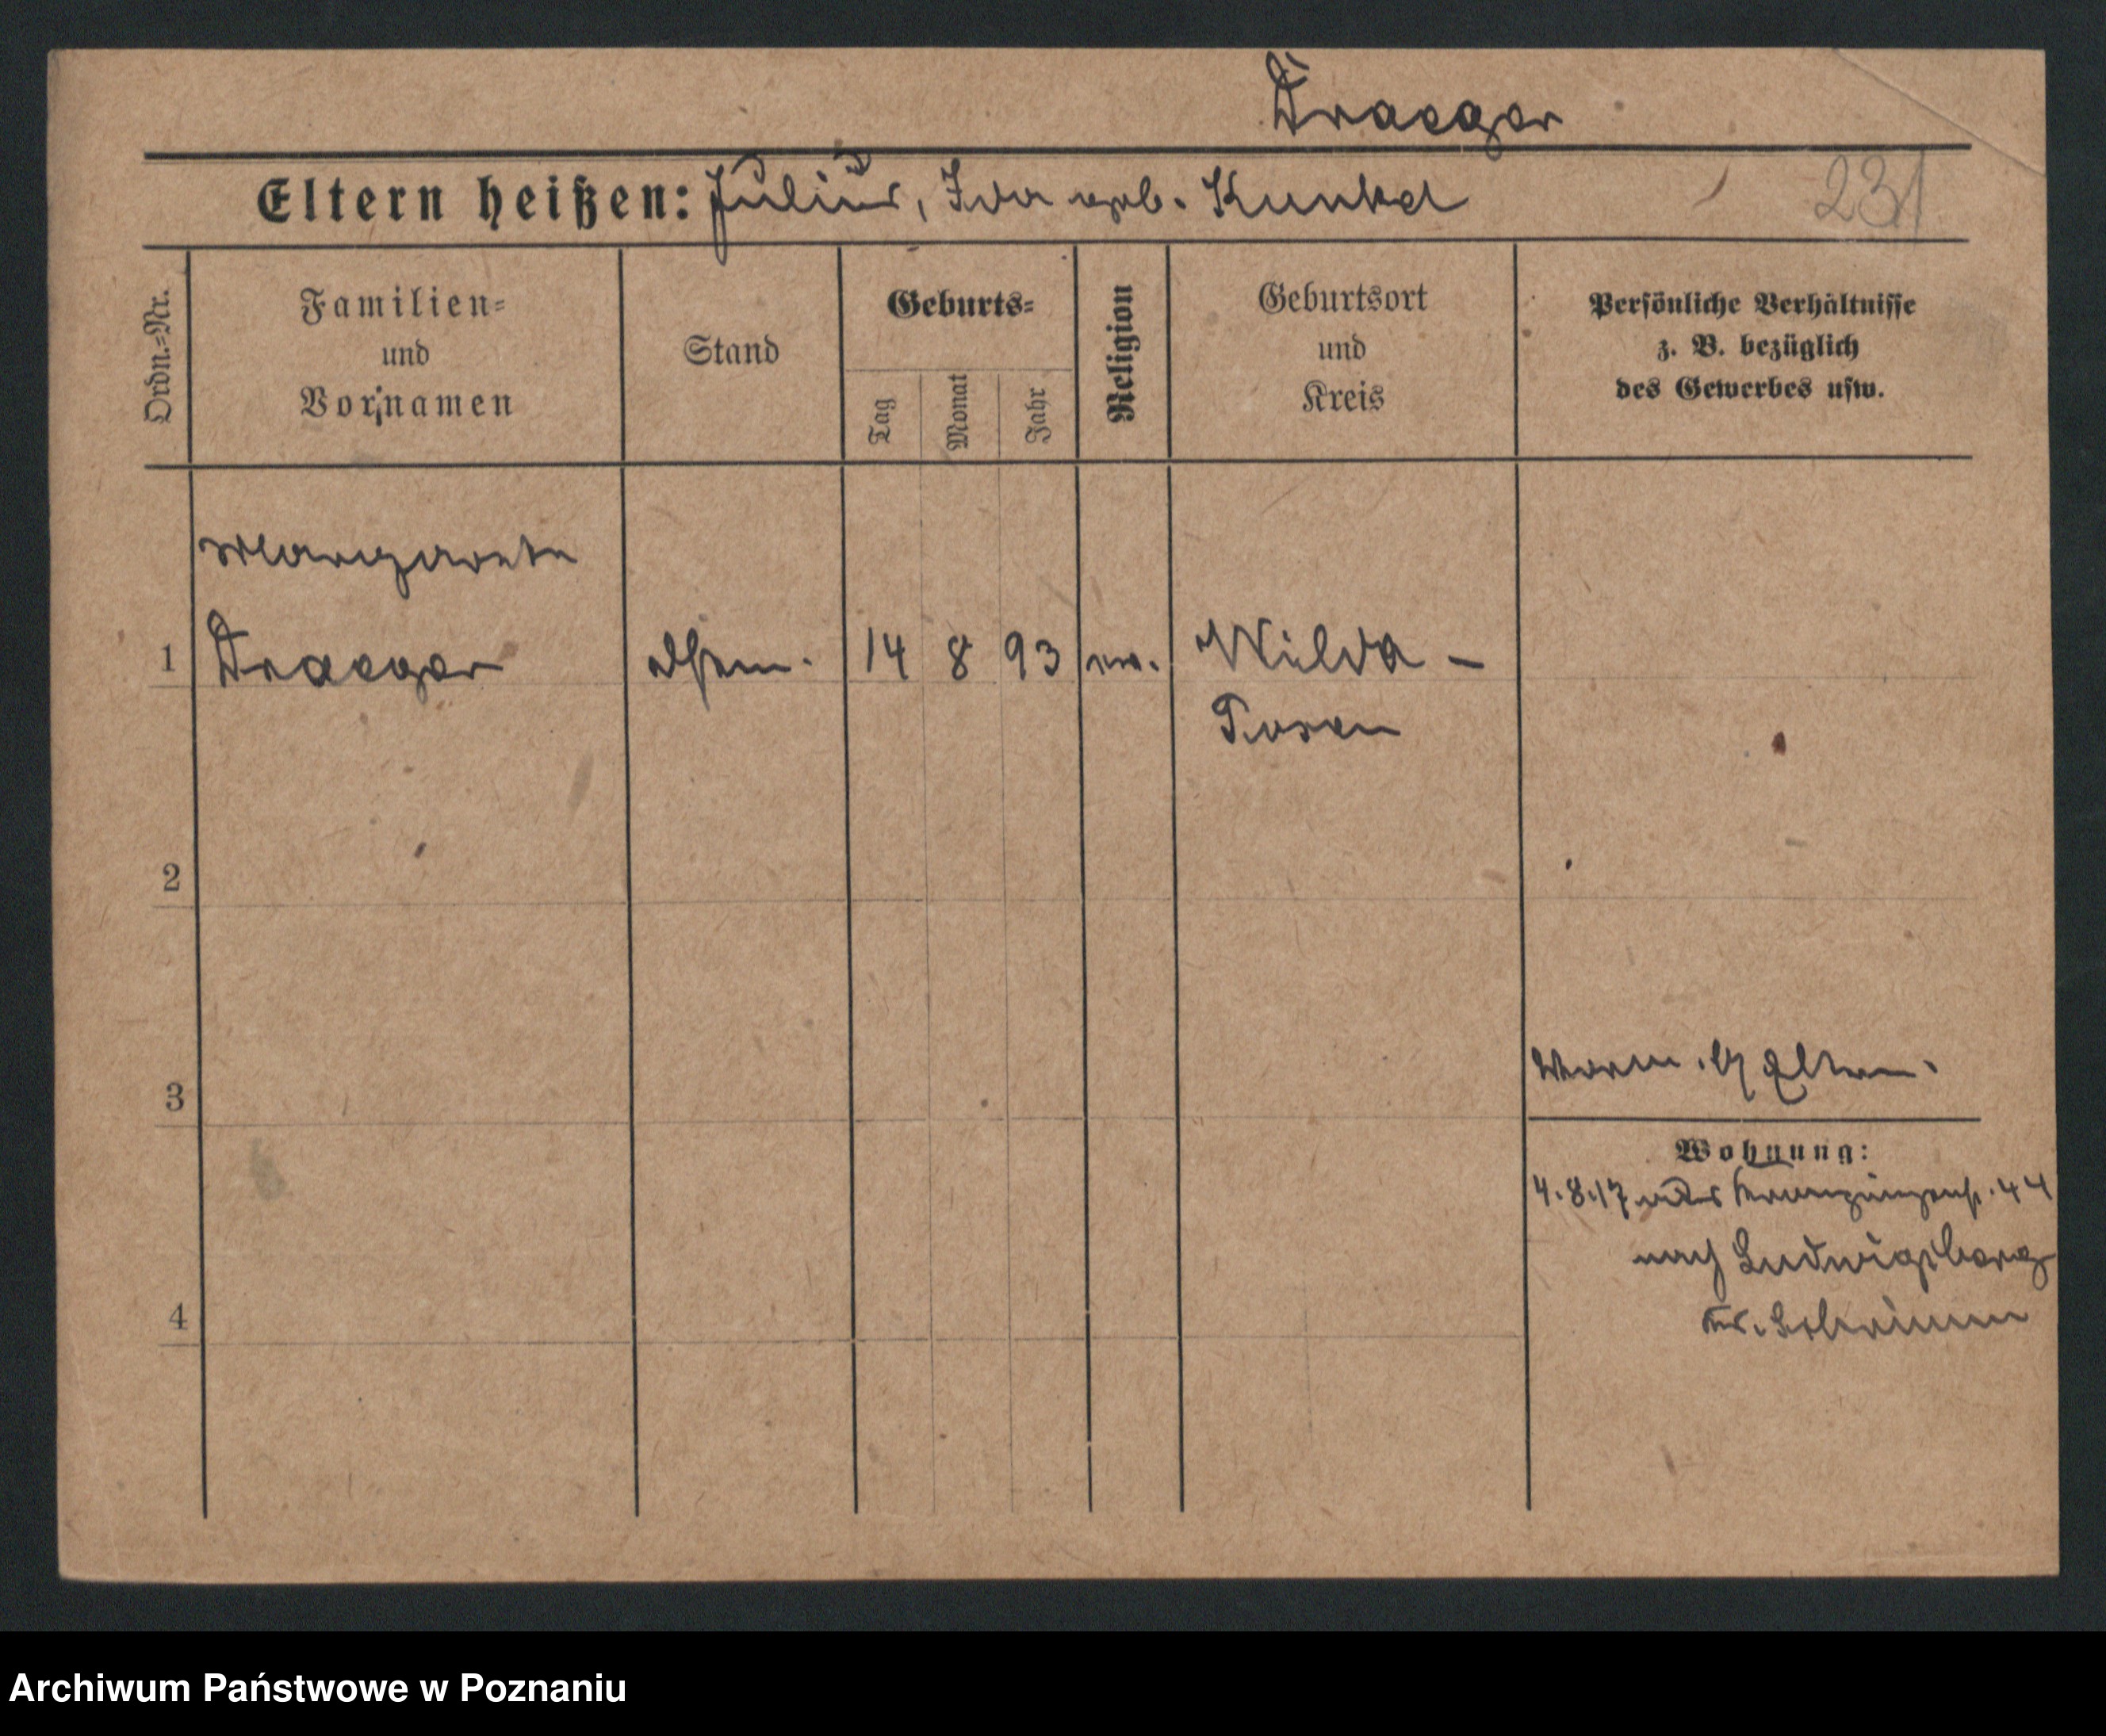 Draeger
Eltern heißen: Julius, Ida geb. Kunkel
231
Ordn.-Nr.
Familien-
und
Vornamen
Stand
Geburts-
Tag
Monat
Jahr
Religion
Geburtsort
und
Kreis
Persönliche Verhältnisse
z. B. bezüglich
des Gewerbes usw.
Margarete
1 Draeger 14 8 93 ev. Wilda -
Posen
2
3
Eltern.
Wohnung:
4.8.17 44
nach Ludwigsberg
Kr. Schrimm
4
Archiwum Państwowe w Poznaniu